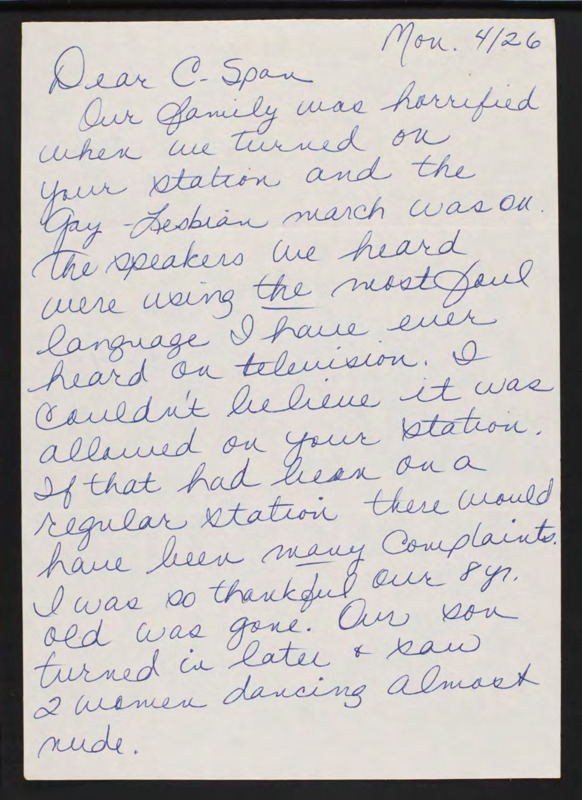 Mon. 4/26
Dear C-Span
Our family was horrified
when we turned on
your station and the
Gay-Lesbian march was on.
The speakers we heard
were using the most foul
language I have ever
heard on television. I
couldn't believe it was
allowed on your station.
If that had been on a
regular station there would
have been many complaints.
I was so thankful our 8 yr.
old was gone. Our son
turned in later & saw
2 women dancing almost
nude.